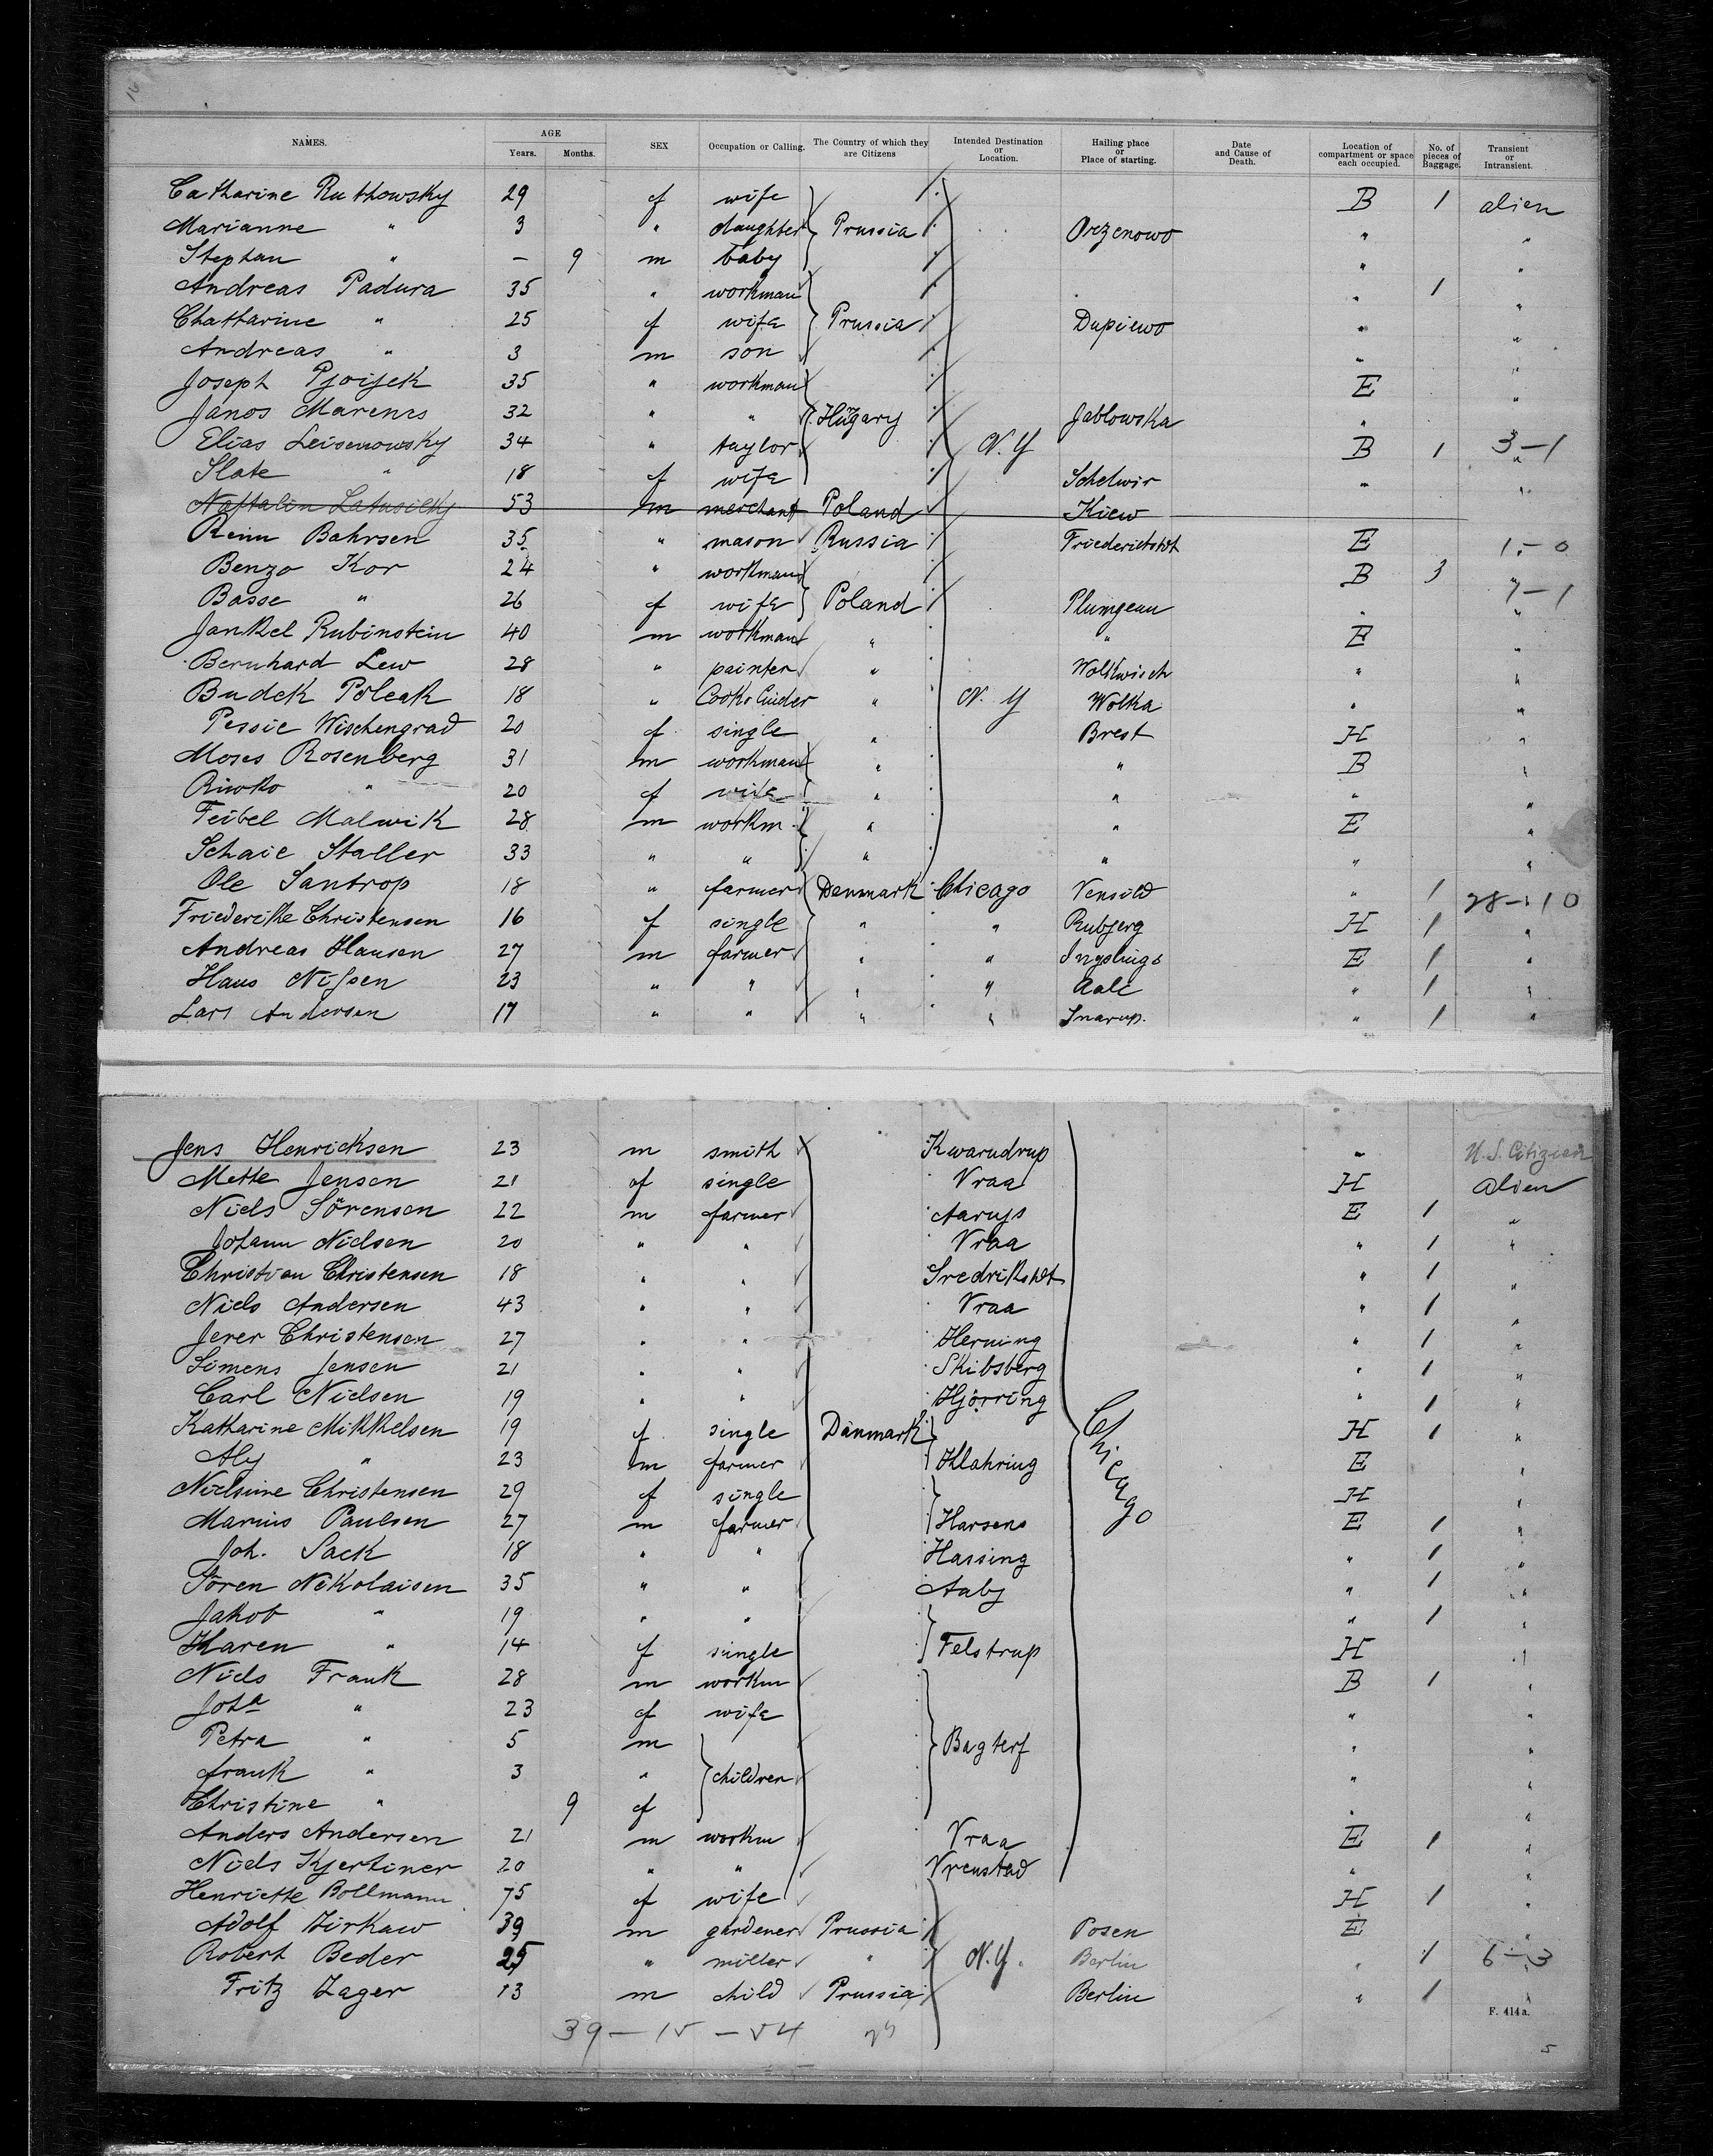 NAMES. AGE Years. Months. SEX Occupation or Calling. The Country of which they are Citizens Intended Destination or Location. Hailing place or Place of starting. Date and Cause of Death. Location of compartment or space each occupied. No. of pieces of Baggage. Transient or Intransient.
Catharine Ruthowsky 29 f wife B 1 alien
Marianne " 3 " daughter Prussia Orzenowo " "
Stephan " — 9 m baby " "
Andreas Padura 35 " workman " 1 "
Chattarine " 25 f wife Prussia Dupiewo " "
Andreas " 3 m son " "
Joseph 35 " workman E "
Janos Marenes 32 " " Hŭgary Jablowska " "
Elias Leisenowsky 34 " taylor N.Y B 1 3–1
Slate " 18 f wife Schelwir " "
Naftalin 53 m merchant Poland Kiew
Reim Bahrsen 35 " mason Russia Friederichstdt E 1–0
Benzo Kor 24 " workman B 3 7–1
Basse " 26 f wife Poland Plumgeau " "
Jankel Rubinstein 40 m workman " " E "
Bernhard Lew 28 " painter " Wolkwisch " "
Budek Poleak 18 " " N.Y Wolka " "
Pessie Wischengrad 20 f single " Brest H "
Moses Rosenberg 31 m workman " " B "
Riwko " 20 f wife " " " "
Feibel Malwik 28 m workm. " " E "
Schaie Staller 33 " " " " " "
Ole Santrop 18 " farmer Denmark Chicago Vensild " 1 28–10
Friederike Christensen 16 f single " " Rubjerg H 1 "
Andreas Hansen 27 m farmer " " E 1 "
Hans Nissen 23 " " " " Aale " 1 "
Lars Andersen 17 " " " " Snarup. " 1 "
Jens Henricksen 23 m smith Kwarndrup " U.S. Citizen
Mette Jensen 21 f single Vraa H Alien
Niels Sörensen 22 m farmer Aarups E 1 "
Johann Nielsen 20 " " Vraa " 1 "
Christian Christensen 18 " " Fredrikstdt " 1 "
Niels Andersen 43 " " Vraa " 1 "
Jerer Christensen 27 " " Herning " 1 "
Simens Jensen 21 " " Skibsberg " 1 "
Carl Nielsen 19 " " Hjörring " 1 "
Katharine Mikkelsen 19 f single Dänmark Chicago H 1 "
Aly " 23 m farmer Klahring E "
Nielsine Christensen 29 f single H "
Marius Paulsen 27 m farmer Harsens E 1 "
Joh. Sack 18 " " Hassing " 1 "
Sören Nikolaisen 35 " " Aaby " 1 "
Jakob " 19 " " " 1 "
Karen " 14 f single Felstrup H "
Niels Frank 28 m workm B 1 "
Joha " 23 f wife " "
Petra " 5 m Bagterf " "
frank " 3 " children " "
Christine " 9 f " "
Anders Andersen 21 m workm Vraa E 1 "
Niels Kjertiner 20 " " Vrenstad " "
Henriette Bollmann 75 f wife H 1 "
Adolf Zirkaw 39 m gardener Prussia Posen E "
Robert Beder 25 " miller " N.Y. Berlin " 1 6–3
Fritz Zager 13 m child Prussia Berlin " 1 "
F. 414a.
39 – 15 – 54
5